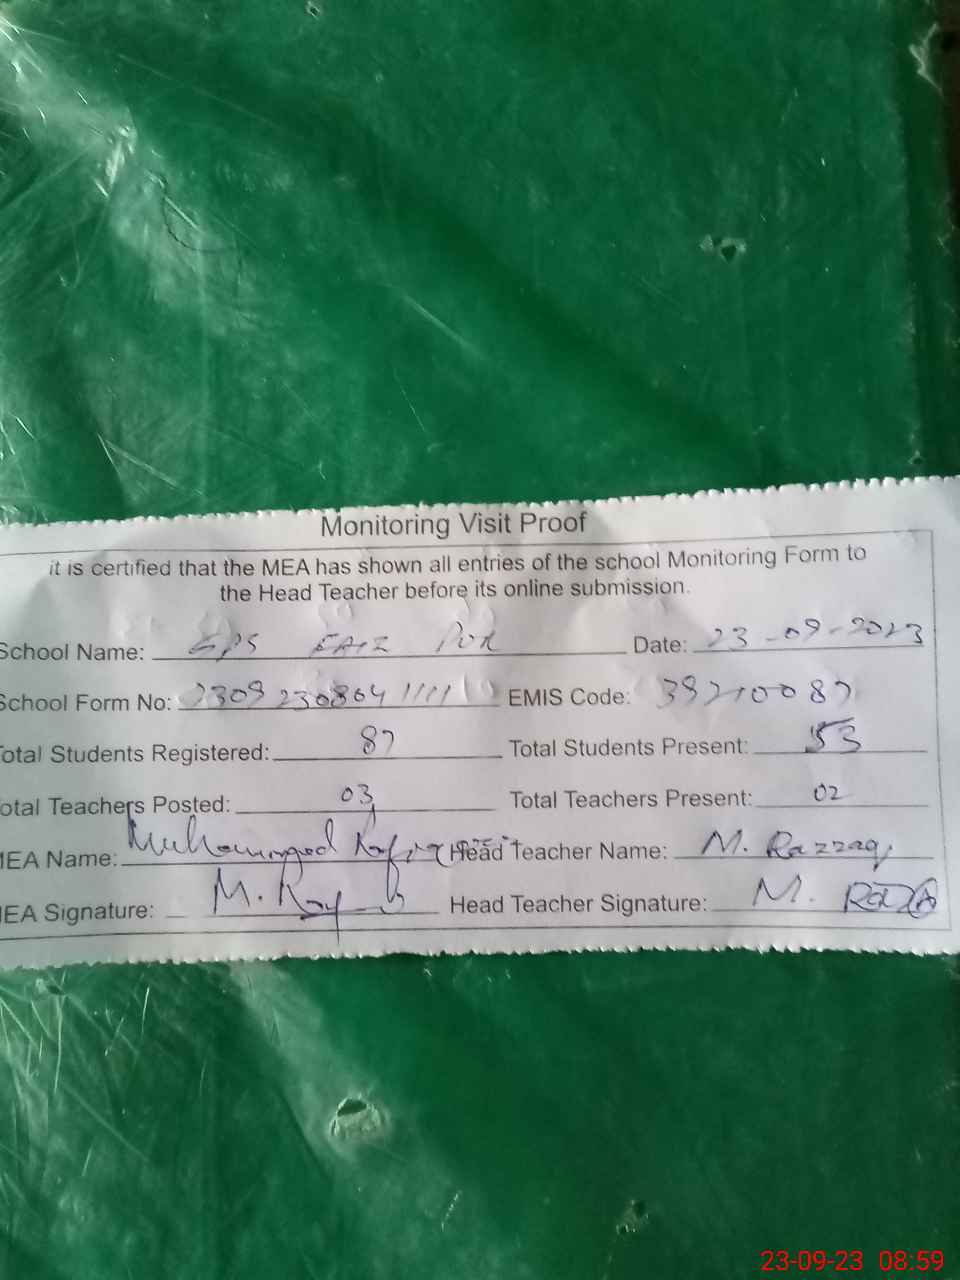 Monitoring Visit Proof
it is certified that the MEA has shown all entries of the school Monitoring Form to
the Head Teacher before its online submission.
School Name: GPS FAIZ PUR Date: 23-09-2023
School Form No: 2309230864 11111 EMIS Code: 39210087
Total Students Registered: 87 Total Students Present: 53
Total Teachers Posted: 03 Total Teachers Present: 02
MEA Name: Muhammad Head Teacher Name: M. Razzaq
MEA Signature: M. Head Teacher Signature: M.
23-09-23 08:59